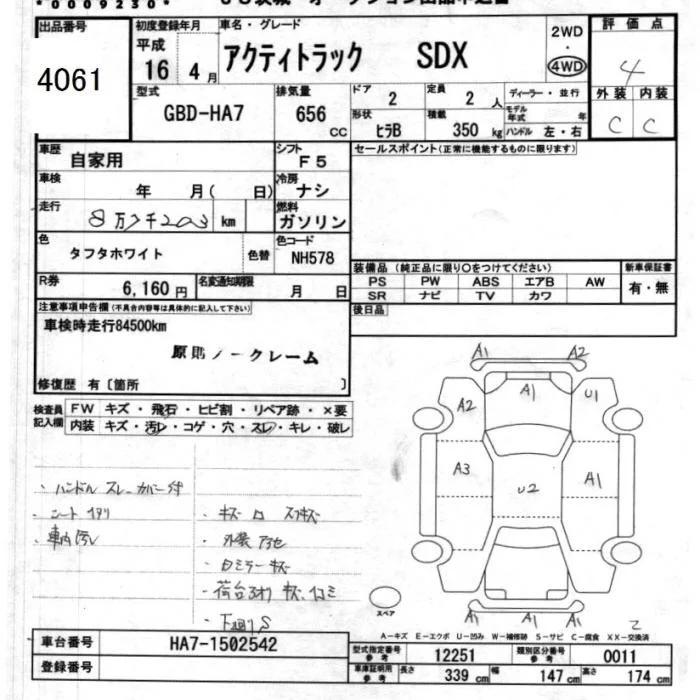 *0009230*
出品番号
4061
初度登録年月
平成
16 4月
車名・グレード
アクティトラック SDX
2WD
・
4WD
評価点
4
外装 内装
C C
型式
GBD-HA7
排気量
656 CC
ドア
2
定員
2 人
形状
ヒラB
積載
350 kg
ディーラー・並行
モデル年式 年
ハンドル 左・右
車歴
自家用
シフト
F5
車検
年 月( 日)
冷房
ナシ
走行
km
燃料
ガソリン
色
タフタホワイト
色替
色コード
NH578
R券
6,160円
名変通知期限
月 日
セールスポイント(正常に機能するものに限ります)
装備品 (純正品に限り○をつけてください)
PS PW ABS エアB AW
SR ナビ TV カワ
新車保証書
有・無
後日品
注意事項申告欄(不具合内容等は具体的に記入して下さい)
車検時走行84500km
原則ノークレーム
修復歴 有〔箇所 〕
検査員記入欄
FW キズ・飛石・ヒビ割・リペア跡・×要
内装 キズ・汚レ・コゲ・穴・スレ・キレ・破レ
・ハンドル スレ カバー付
・車内汚レ
・キズ
・外装
・荷台
A1 A2
A2 A1 U1
A3 U2 A1
A1 A1 A1
スペア
2
A-キズ E-エクボ U-凹み W-補修跡 S-サビ C-腐食 XX-交換済
車台番号
HA7-1502542
登録番号
型式指定番号 参考
12251
類別区分番号 参考
0011
車庫証明用 参考
長さ 339 cm 幅 147 cm 高さ 174 cm